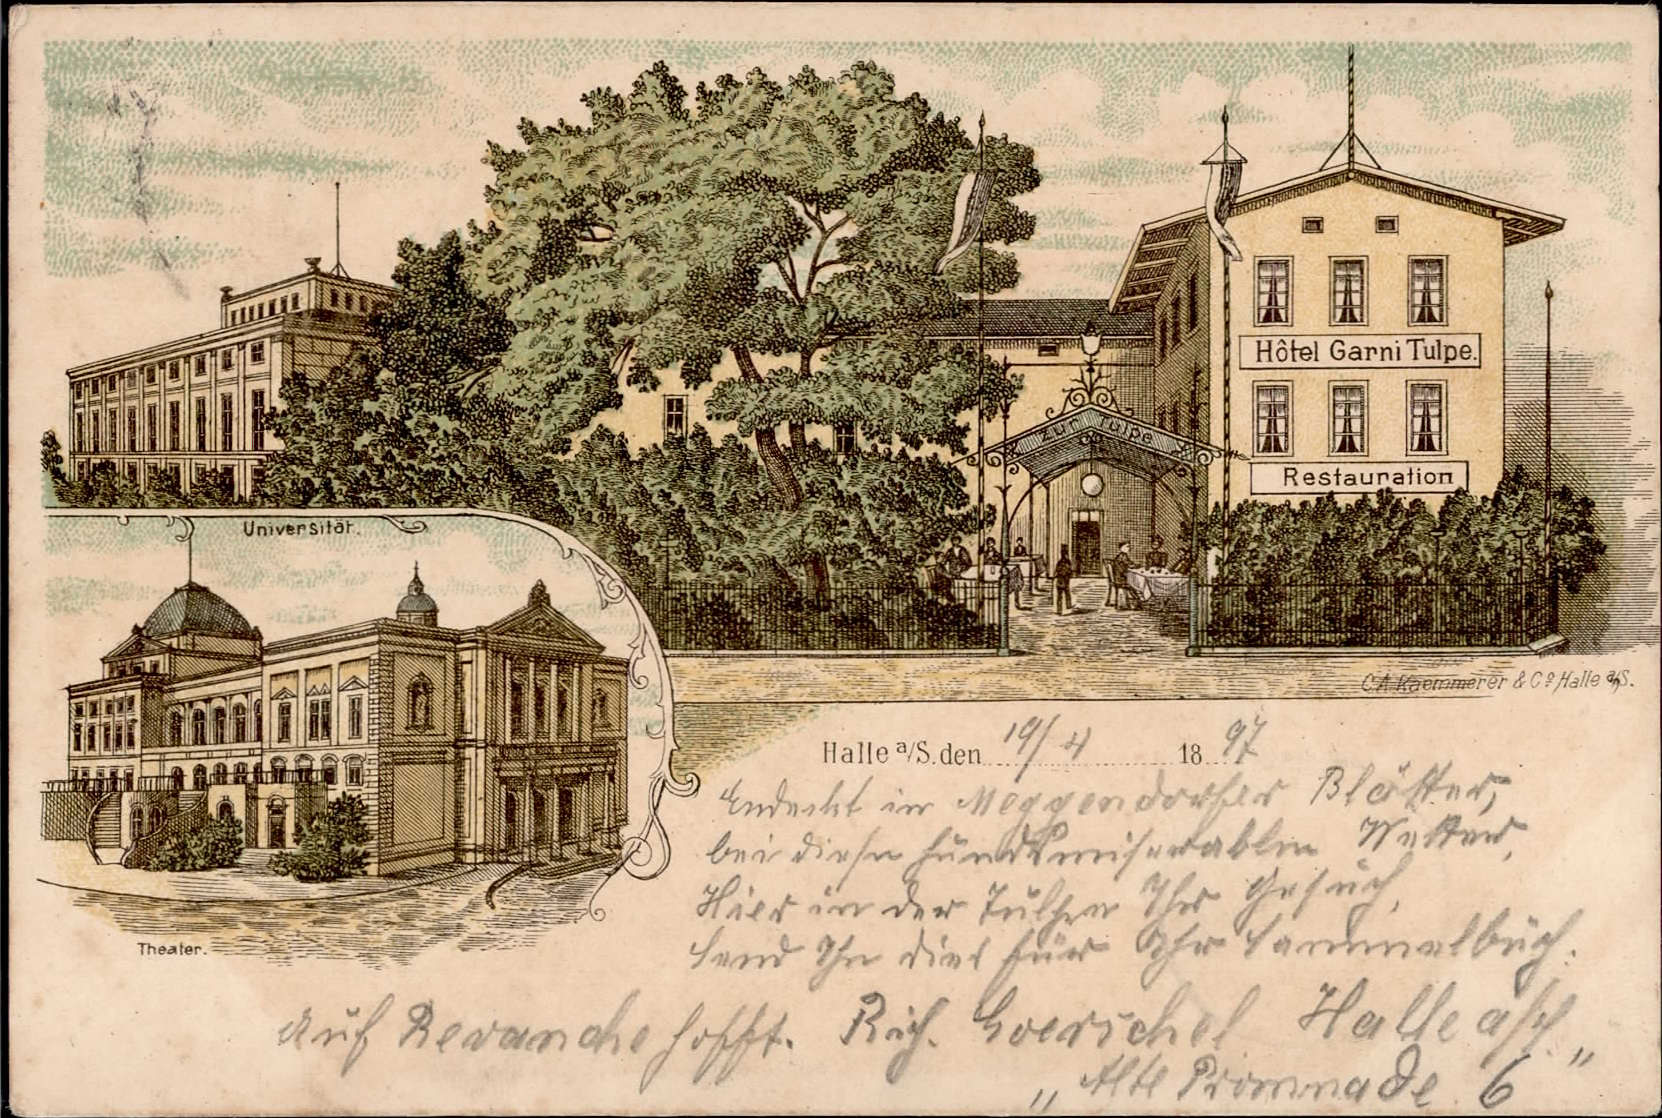 Hôtel Garni Tulpe.
zur Tulpe
Restauration
Universität.
C. A. Kaemmerer & Co, Halle a/S.
Halle a/S. den 19/4 1897
Endeckt in Meggendorfer Blätter,
bei diesen hundsmiserablen Wetter,
Hier in der Tulpen Ihr Gesuch,
Send Ihn dies für Ihr Sammelbuch.
Theater.
Auf Revanche hofft. Rich. Halle a/S.
„Alte Promenade 6"